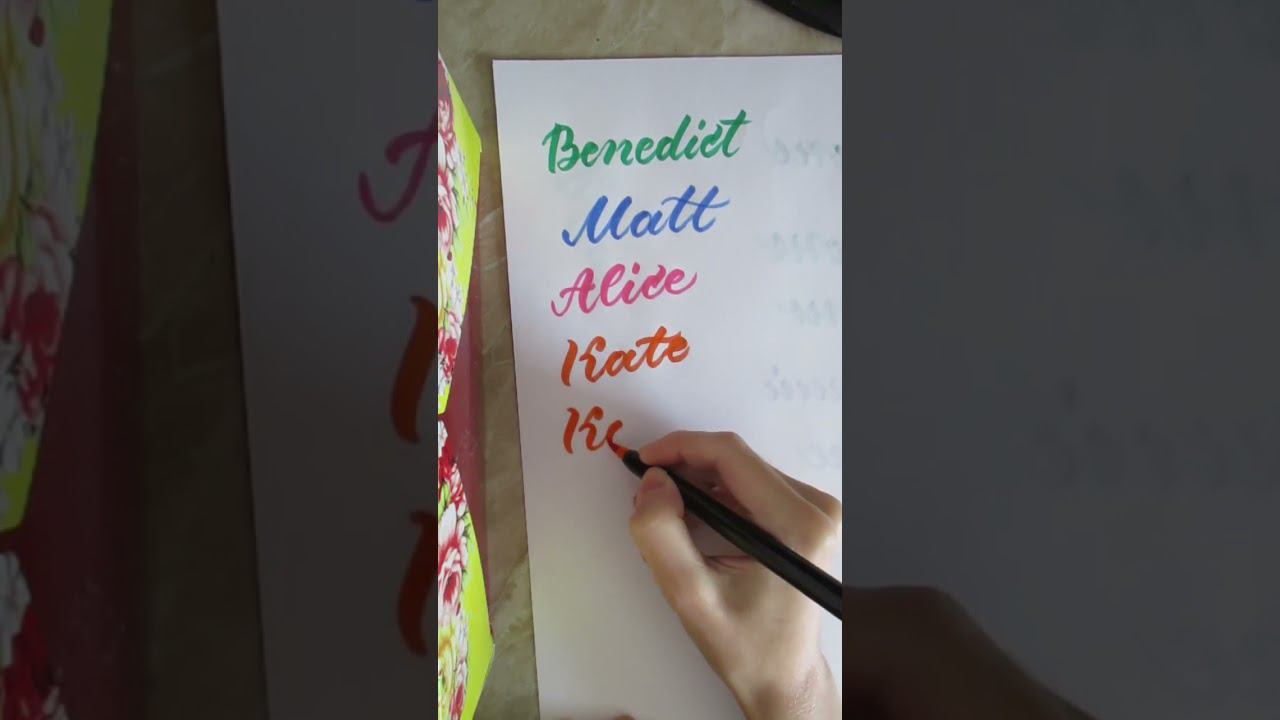 Benedict
Matt
Alice
Kate